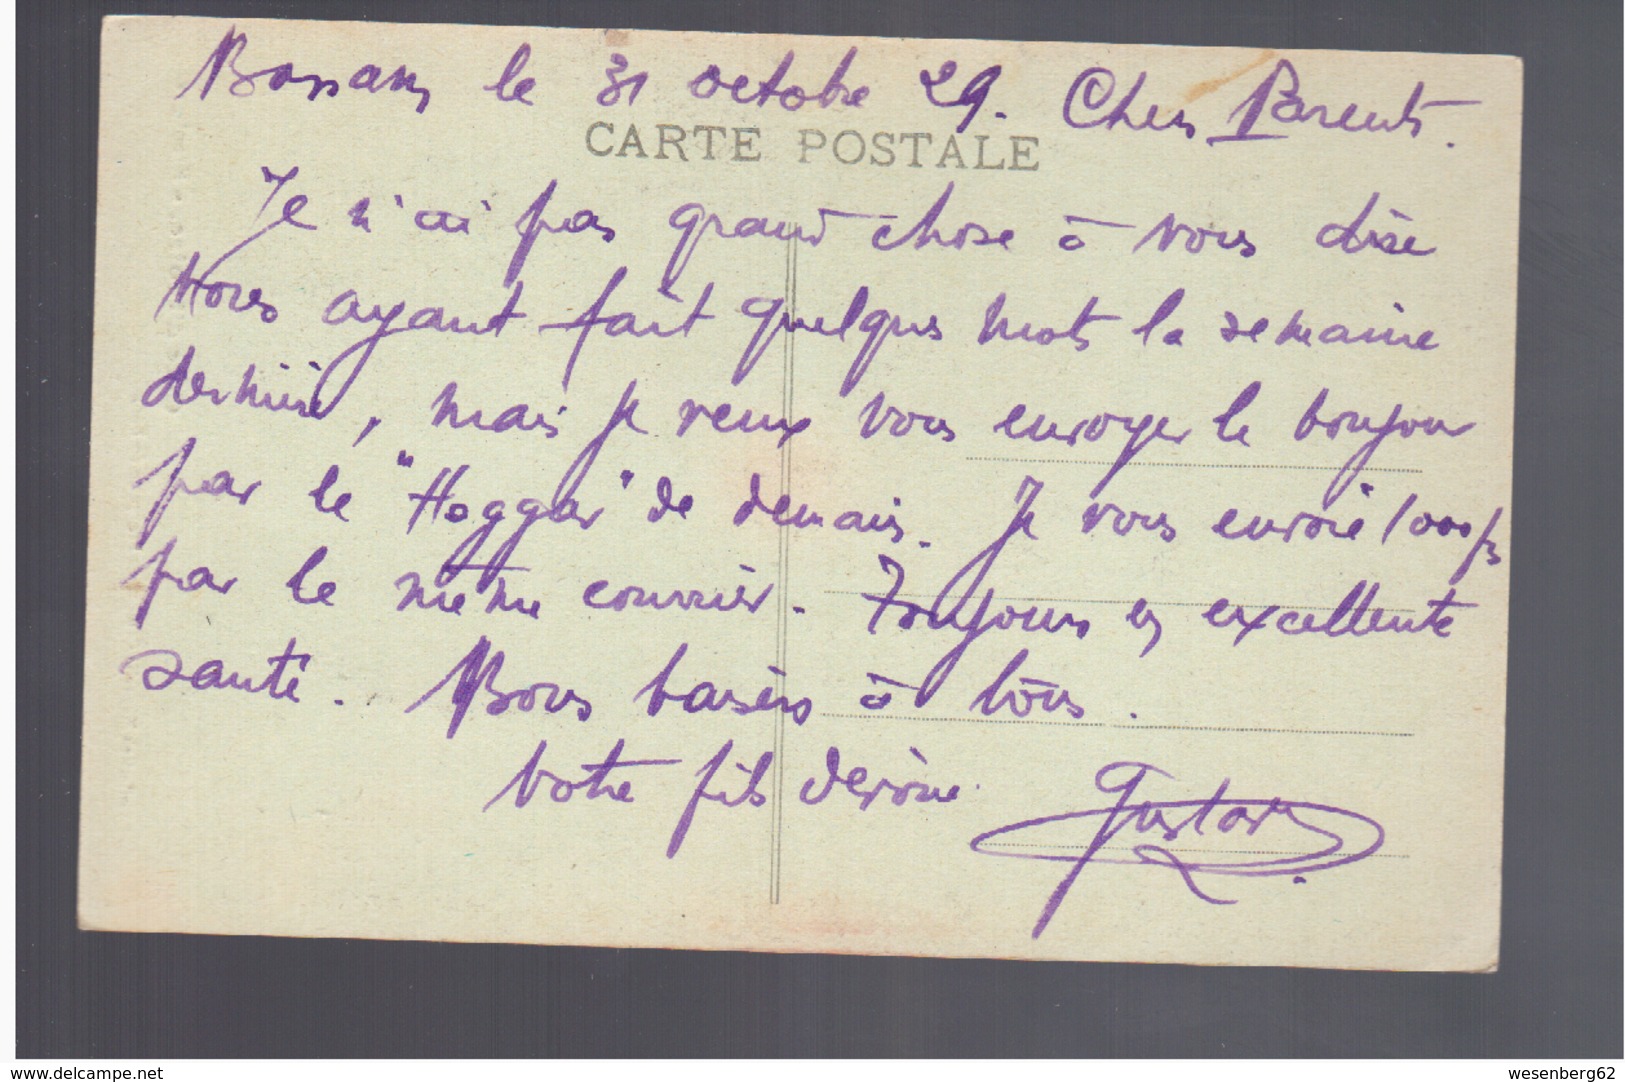 Bassam le 31 octobre 29. Chers Parents.
CARTE POSTALE
Je n'ai pas grand chose à vous dire
vous ayant fait quelques mots la semaine
dernière, mais je veux vous envoyer le bonjour
par le "Hoggar" de demain. Je vous envoie 1000 frs
par le même courrier. Toujours en excellente
santé. Bons baisers à tous.
Votre fils dévoué.
Gustave
www.delcampe.net
wesenberg62